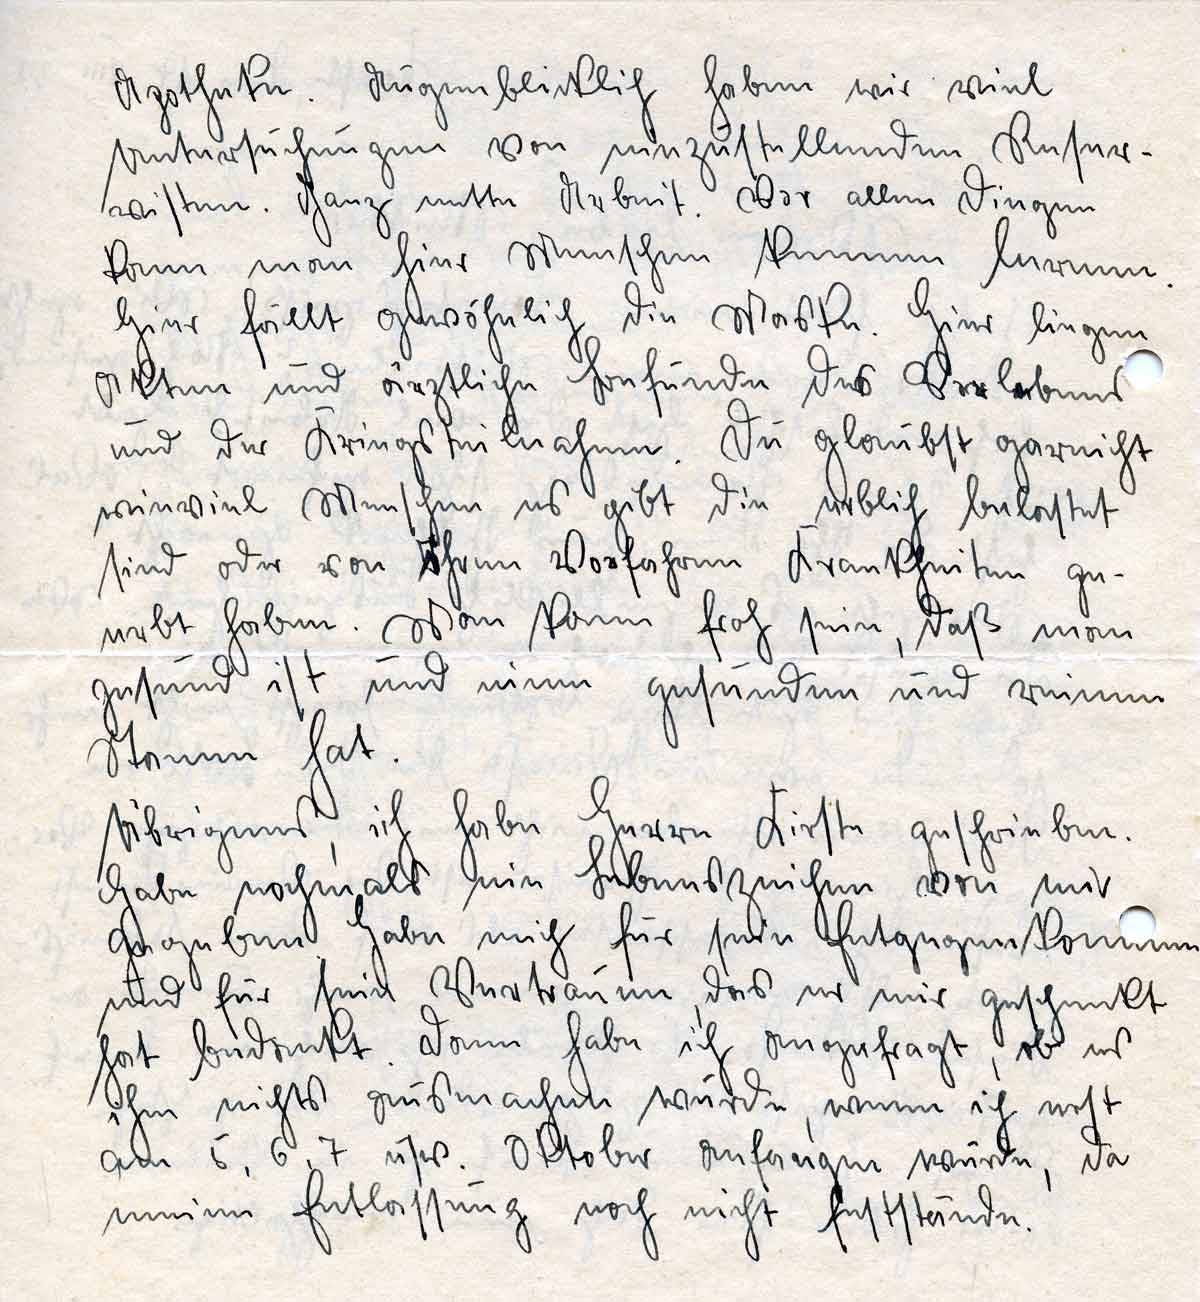 Apotheke. Augenblicklich haben wir viel
Untersuchungen von einzustellenden Reser-
visten. Ganz nette Arbeit. Vor allen Dingen
kann man hier Menschen kennen lernen.
Hier fällt gewöhnlich die Maske. Hier liegen
Akten und ärztliche Befunde des Vorlebens
und der Kriegsteilnahme. Du glaubst garnicht
wieviel Menschen es gibt die erblich belastet
sind oder von Ihren Vorfahren Krankheiten ge-
erbt haben. Man kann froh sein, daß man
gesund ist und einen gesunden und reinen
Stamm hat.
Übrigens, ich habe Herrn Kirste geschrieben.
Habe nochmals ein Lebenszeichen von mir
gegeben. Habe mich für sein Entgegenkommen
und für sein Vertrauen, das er mir geschenkt
hat bedankt. Dann habe ich angefragt, ob es
ihm nichts ausmachen würde, wenn ich erst
am 5, 6, 7 usw. Oktober anfangen würde, da
meine Entlassung noch nicht feststände.